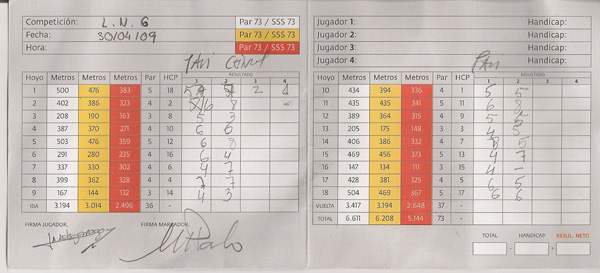 Competición: L.N.G Par 73 / SSS 73
Fecha: 30/04/09 Par 73 / SSS 73
Hora: Par 73 / SSS 73
Hoyo Metros Metros Metros Par HCP RESULTADO
1 2 3 4
1 500 476 383 5 18 2
2 402 386 323 4 2 8
3 208 190 163 3 8 5 3
4 387 370 271 4 10 6 6
5 503 476 359 5 12 6 8
6 291 280 235 4 16 6 4
7 337 330 302 4 6 4 7
8 399 362 328 4 4 7 7
9 167 144 132 3 14 4 3
IDA 3.194 3.014 2.496 36 -
FIRMA JUGADOR. FIRMA MARCADOR.
Jugador 1: Handicap:
Jugador 2: Handicap:
Jugador 3: Handicap:
Jugador 4: Handicap:
RESULTADO
1 2 3 4
10 434 394 336 4 1 5 5
11 441 435 341 5 11 6 8
12 389 364 315 4 9 5
13 205 175 148 3 3 4 5
14 406 386 332 4 7 8 5
15 469 456 373 5 13 4 7
16 147 134 111 3 15 4 -
17 428 381 325 4 5 6 5
18 504 469 367 5 17 6 6
VUELTA 3.417 3.194 2.648 37 -
TOTAL 6.611 6.208 5.144 73 -
TOTAL HANDICAP RESUL. NETO